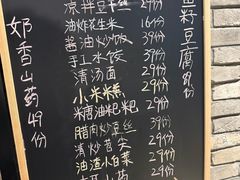 凉拌豆丝 29份
油炸花生米 16份
酱油炒饭 39份
手工水饺 39份
清汤面 29份
小米糕 29份
糖油粑粑 29份
腊肉炒豆丝 39份
清炒苕尖 29份
油渣小白菜 29份
奶香山药49份
豆腐